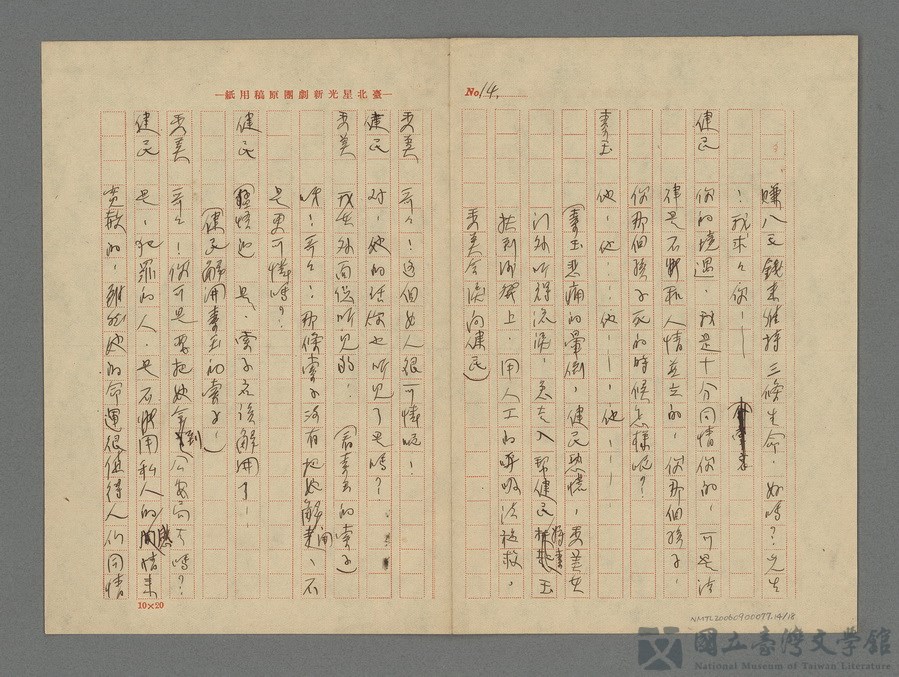 No 14.
賺八元錢來維持三條生命，好嗎？先生
！我求々你！——
健民　你的境遇．我是十分同情你的，可是法
律是不能和人情並立的，你那個孩子，
你那個孩子死的時候怎樣呢？
素玉　他，他……他——，他——
（素玉悲痛的暈倒，健民恐慌，秀美女
門外听得流淚，急走入幫健民 素玉
扶到沙發上，用人工的呼吸法被救，
秀美含淚向健民）
—臺北星光新劇團原稿用紙—
秀美　哥々！這個女人很可憐呢！
健民　对，她的話你也听見了是嗎？
秀美　我在外面偷听見的！（看素玉的索子）
呀！哥々！那條索子沒有把她解開，不
是更可憐嗎？
健民　是，索子应該解開了——
（健民解開素玉的索子，）
秀美　哥々！你可是要把她拿到公安局去嗎？
健民　是，犯罪的人，是不能用私人的感情來
寬赦的，雖然她的命運很值得人们同情
10×20
NMTL20060900077.14/18
國立臺灣文學館
National Museum of Taiwan Literature